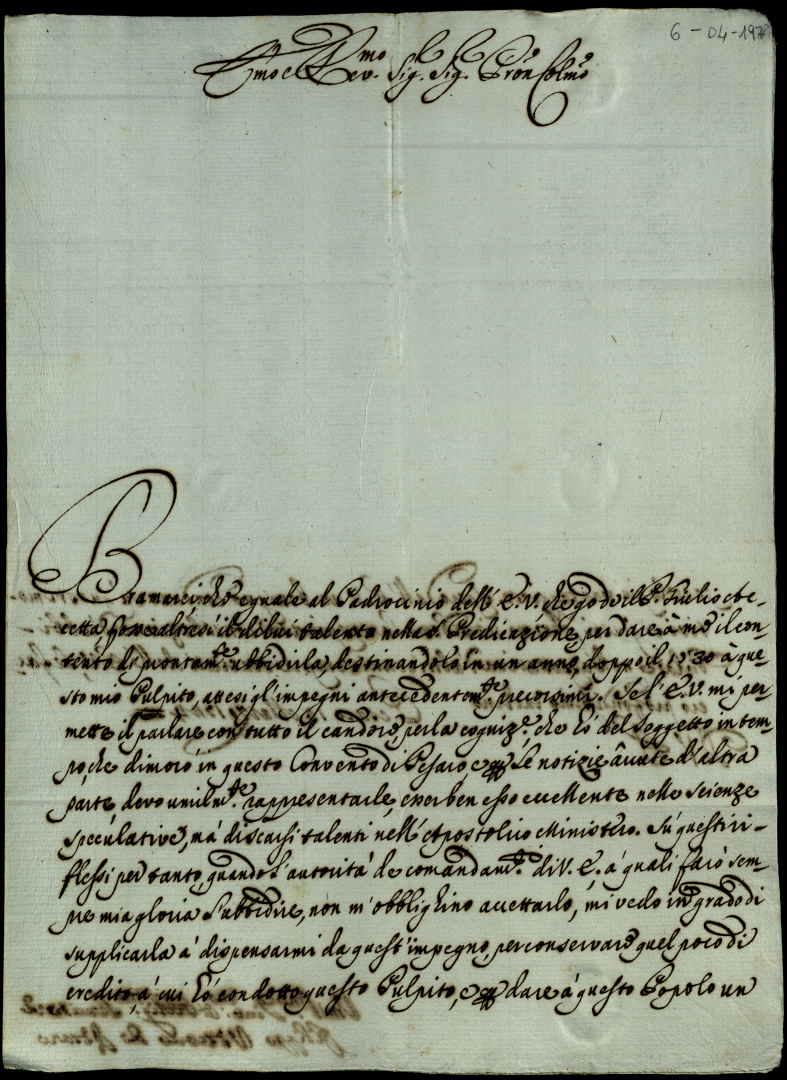 6-04-197
Emo e Rev.mo Sig. Sig. Pron Colmo
Bramarei che eguale al Padrocinio dell' E. V. che gode il P. Tulio
cetta fosse altresi il di lui talento nella S. Predicazione per dare à me il con-
tento di prontam.te ubbidirla, destinandolo in un anno, doppo il 1730 à que-
sto mio Pulpito, attesi gl'impegni antecedentem.te precorsimi. Se l' E. V. mi per-
mette il parlare con tutto il candore per la cogniz.e, che hò del Soggetto in tem-
po, che dimorò in questo Convento di Pesaro, e le notizie àvute d'altra
parte devo umilm.te rappresentarle, esser ben esso eccellente nelle scienze
speculative, mà di scarsi talenti nell' Apostolico Ministero. Sù questi ri-
flessi per tanto, quando l'autorità de comandam.ti di V. E. à quali farò sem-
pre mia gloria l'ubbidire, non m'obblighino accettarlo, mi vedo in grado di
supplicarla à dispensarmi da quest'impegno, per conservare quel poco di
credito, à cui hò condotto questo Pulpito, e dare à questo Popolo un